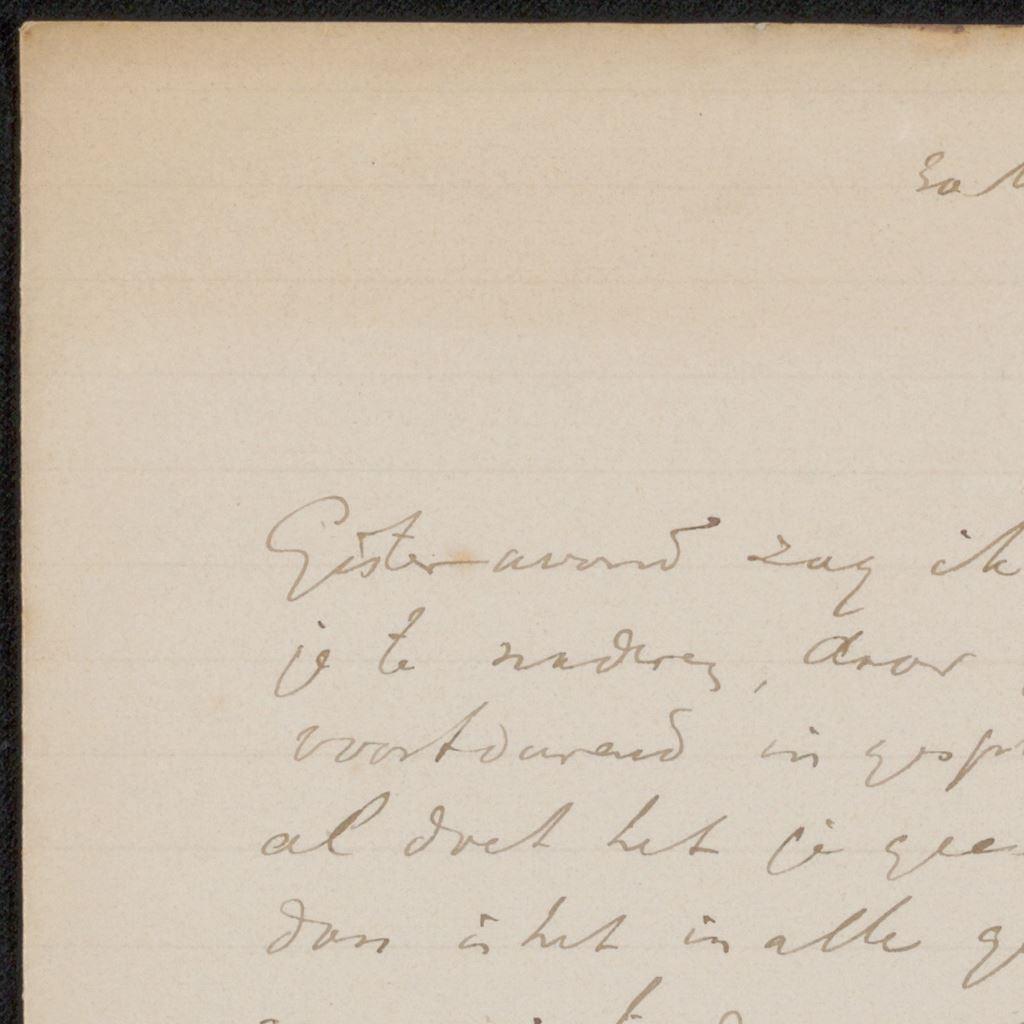 Gister avond zag ik
je te naderen, daar
voortdurend in gespr
al doet het je gee
dan is het in alle g